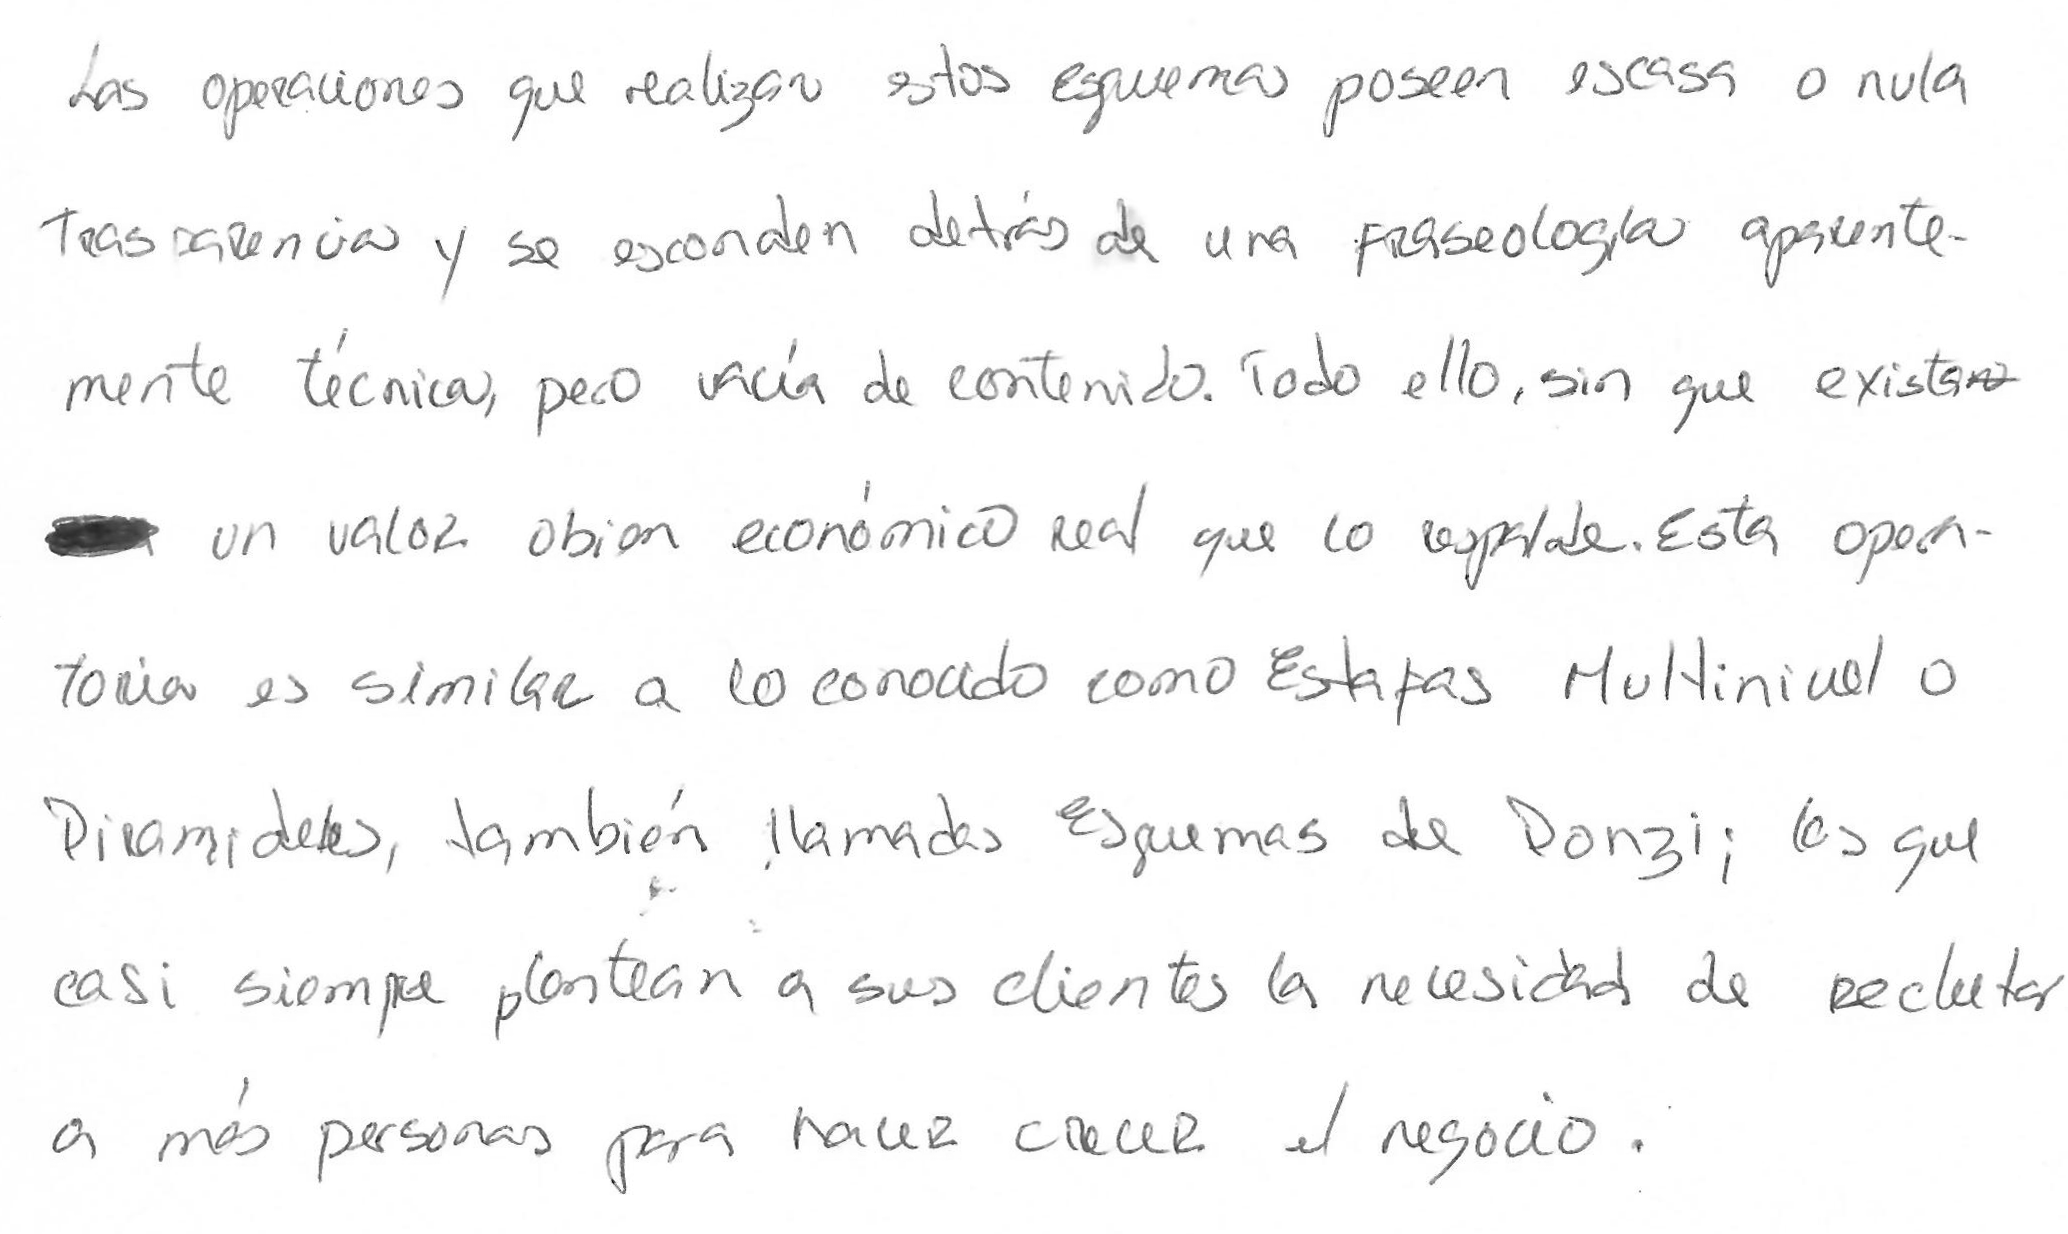 Las operaciones que realizan estos esquemas poseen escasa o nula
trasparencia y se esconden detrás de una fraseología aparente-
mente técnica, pero vacía de contenido. Todo ello, sin que exista
un valor o bien económico real que lo respalde. Esta opera-
toria es similar a lo conocido como Estafas Multinivel o
Piramidales, también llamadas Esquemas de Ponzi; los que
casi siempre plantean a sus clientes la necesidad de reclutar
a más personas para hacer crecer el negocio.